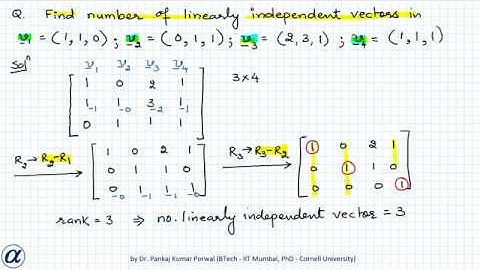 Q. Find number of linearly independent vectors in
v₁ = (1,1,0) ; v₂ = (0,1,1) ; v₃ = (2,3,1) ; v₄ = (1,1,1)
Solⁿ
v₁ v₂ v₃ v₄
1 0 2 1
1₋₁ 1₋₀ 3₋₂ 1₋₁
0 1 1 1
3×4
R₂ → R₂-R₁
1 0 2 1
0 1 1 0
0₋₀ 1₋₁ 1₋₁ 1₋₀
R₃ → R₃-R₂
1 0 2 1
0 1 1 0
0 0 0 1
rank = 3 ⇒ no. linearly independent vector = 3
α
by Dr. Pankaj Kumar Porwal (BTech - IIT Mumbai, PhD - Cornell University)